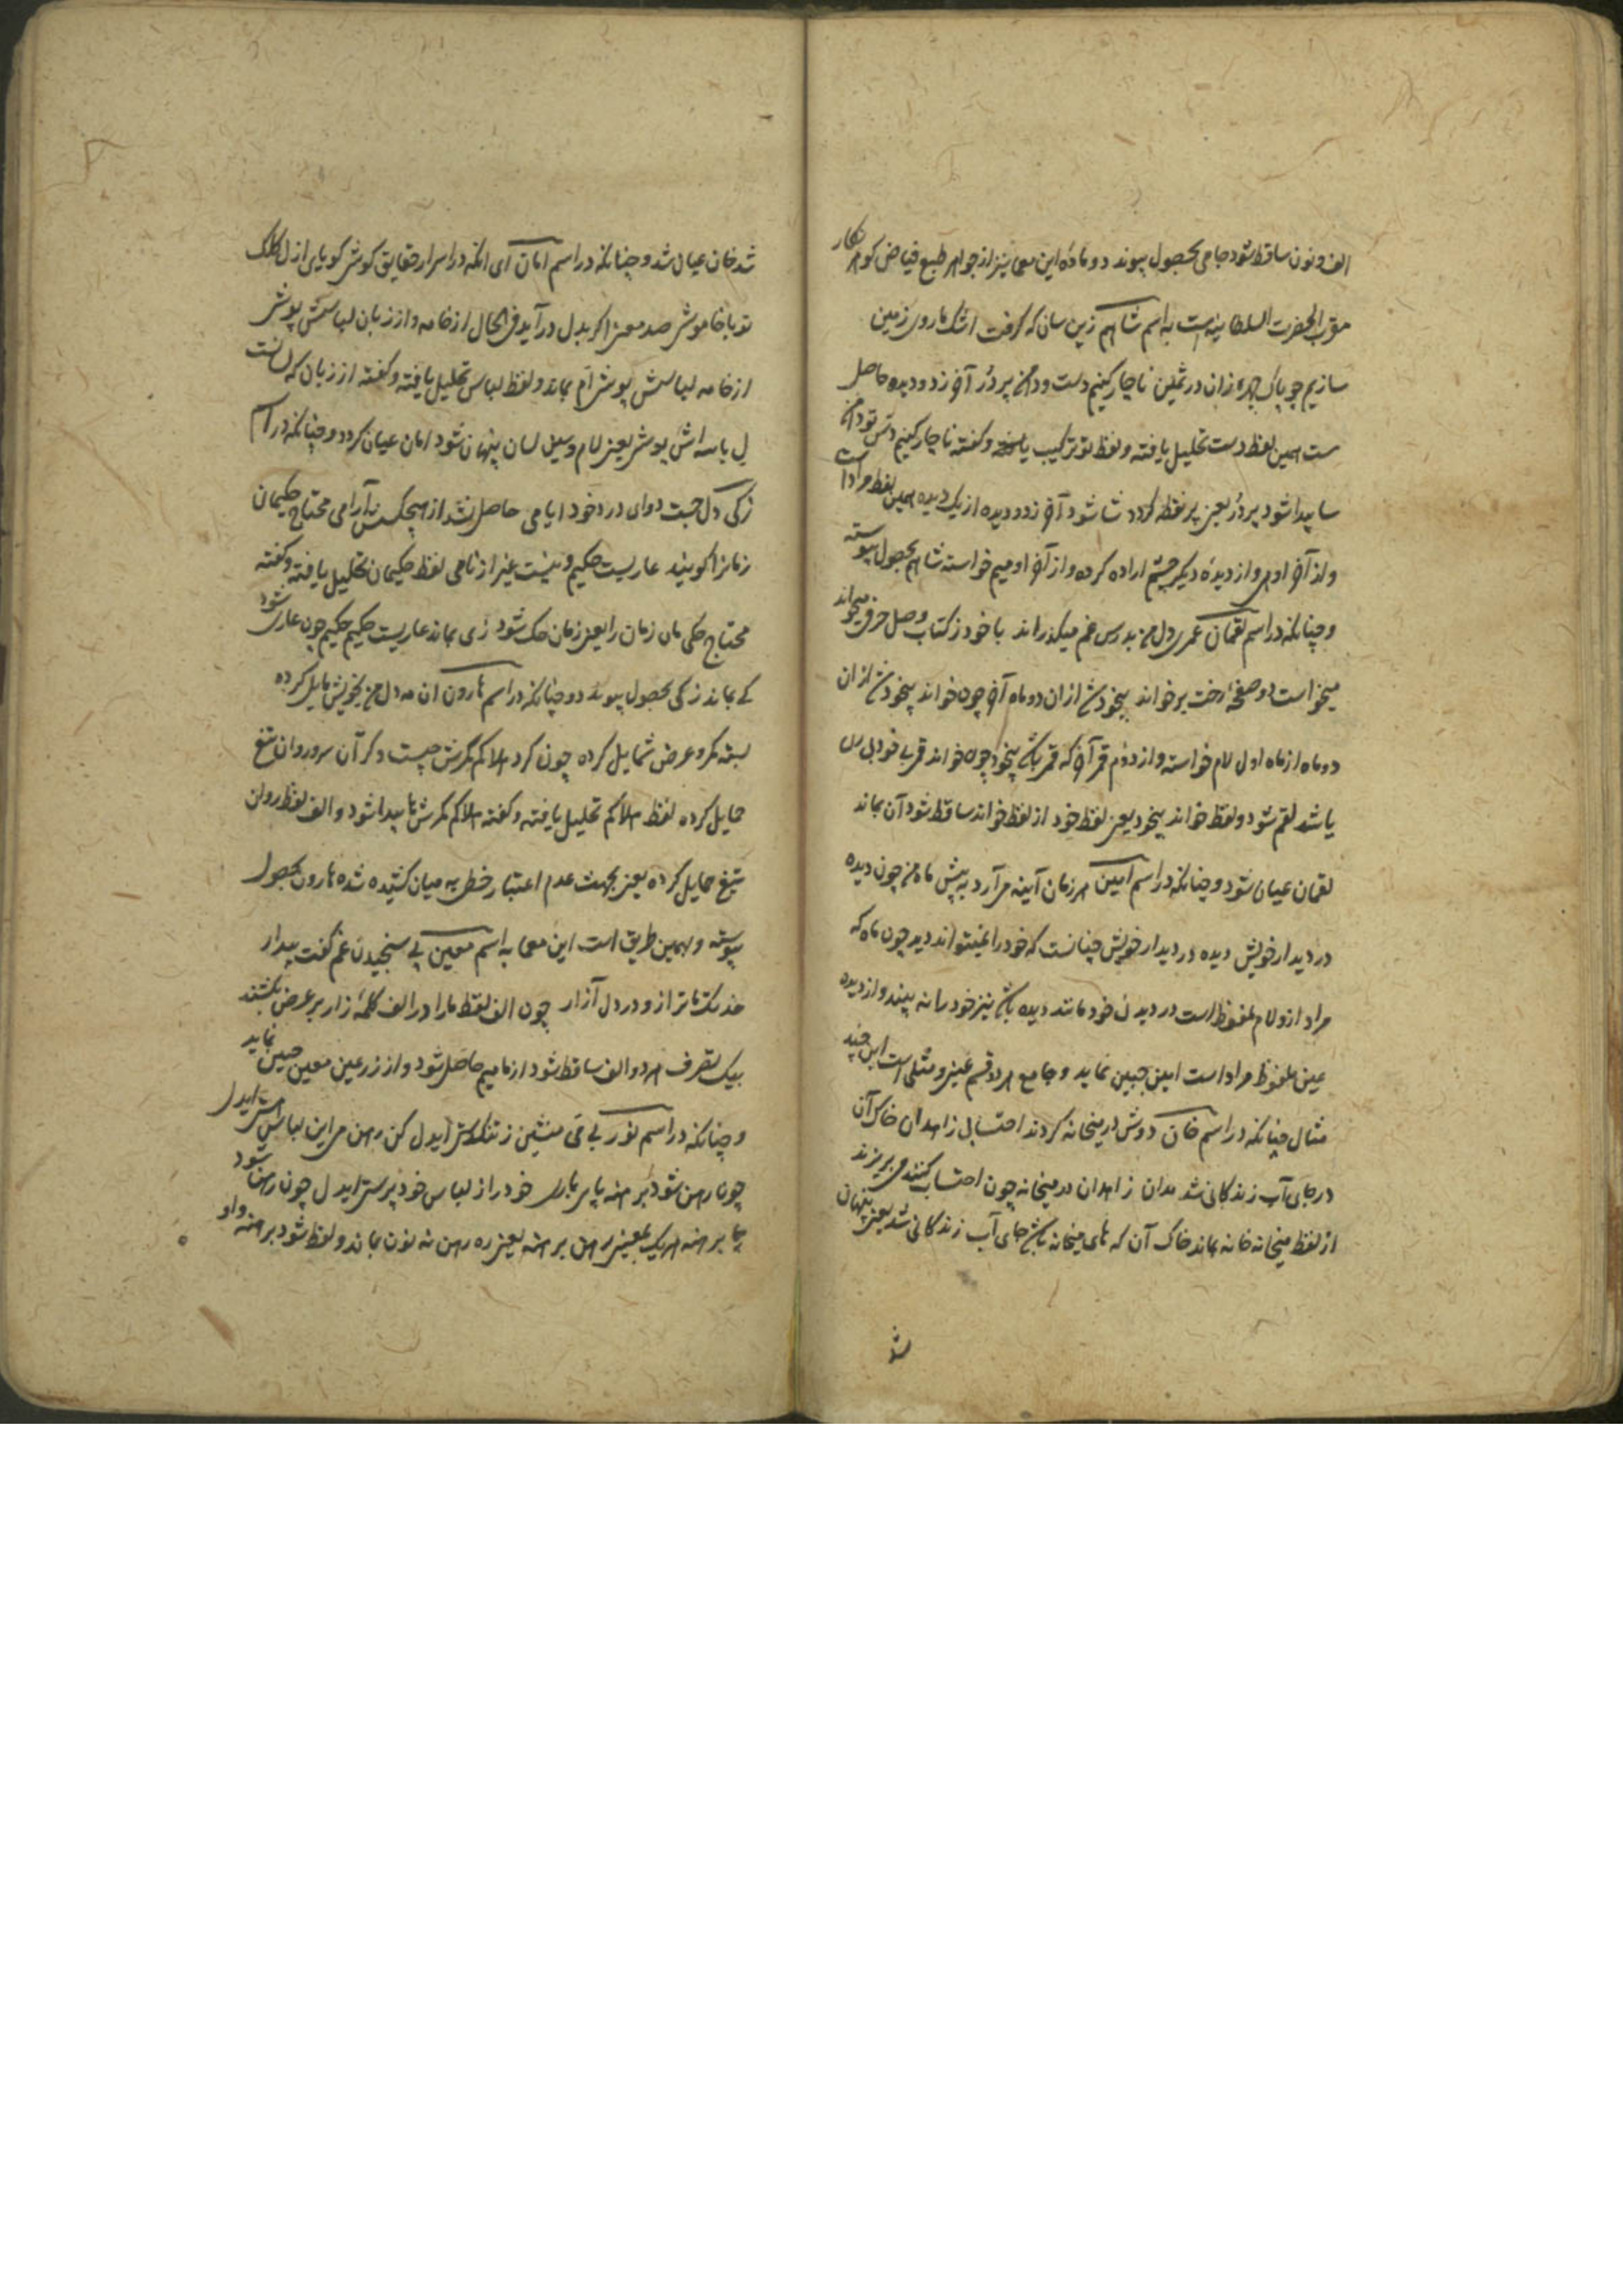 الف و نون ساقط شود جامی بحصول پیوندد و مادهٔ این معما نیز از جواهر طبع فیاض گوهر نگار
مقرب الحضرت السلطانیه است به اسم شاهم زین سان که گرفت اشک ما روی زمین
سازیم چو پاک چهره زان در ثمین ناچار کنیم دست و دامن پر در آخر زدو دیده حاصل
ست همین لفظ دست تحلیل یافته و لفظ تو ترکیب یافته و گفته ناچار کنیم دس تو دامن
سا پیدا شود پر در یعنی پر نقطه گردد شا شود آخر زدو دیده از یک دیده همین لفظ مراد است
و از آخر او هی و از دیدهٔ دیگر چشم اراده کرده و از آخر او میم خواسته شاهم بحصول پیوسته
و چنانکه در اسم لقمان عمری دل من بدرس غم میگذراند با خود ز کتاب وصل حرفی میخواند
میخواست دو صفحهٔ رخت برخواند بیخود شد ازان دو ماه آخر چون خواند بیخود شد ازان
دو ماه از ماه اول لام خواسته و از دوم قمر آخر که قمر باشد بیخود چون خواند قمر بی خود بی را
باشد لقم شود و لفظ خواند بیخود یعنی لفظ خود از لفظ خواند ساقط شود آن بماند
لقمان عیان شود و چنانکه در اسم امین هر زمان آینه می آرد به پیش ماه من چون دیده
در دیدار خویش دیده در دیدار خویش چنانست که خود را نمیتواند دید چون ماه که
مراد ازو لام ملفوظ است در دیدن خود مانند دیده باشد نیز خود را نه بیند و از دیده
عین ملفوظ مراد است امین جبین نماید و جامع هر دو قسم عینی و مثلی است این چند
مثال چنانکه در اسم خان دوش در میخانه کردند احتساب زاهدان خاک آن
در جای آب زندگانی شد بدان زاهدان در میخانه چون احتساب کنند می بریزند
از لفظ میخانه خانه بماند خاک آن که های میخانه باشد جای آب زندگانی شد یعنی پنهان
شد
شد خان عیان شد و چنانکه در اسم امان ای انکه در اسرار حقایق کوشی گویای ازل کلک
تو با خاموشی صد معنی اگر بدل درآید فی الحال از خامه و از زبان لباسش پوشی
از خامه لباسش پوشی ام بماند و لفظ لباس تحلیل یافته و گفته از زبان که لسانست
ل با سه اش پوشی یعنی لام و سین لسان پنهان شود امان عیان گردد و چنانکه در اسم
زکی دل جست دوای درد خود ایامی حاصل نشد از هیچکس آرامی محتاج حکیمان
زمانرا گویند عاریست حکیم و نیست غیر از نامی لفظ حکیمان تحلیل یافته و گفته
محتاج حکی مان زمان را یعنی زمان حک شود زی بماند عاریست حکیم حکیم چون عاری شود
کی بماند زکی بحصول پیوندد و چنانکه در اسم هارون ان مه دل من بخویش مایل کرده
بسته کمر و عرض شمایل کرده چون کرد هلاکم کمرش چیست دگر آن سرو روان تیغ
حمایل کرده لفظ هلاکم تحلیل یافته و گفته هلاکم کمرش ها پیدا شود و الف لفظ روان
تیغ حمایل کرده یعنی بجهت عدم اعتبار خطی به میان کشیده شده هارون بحصول
پیوسته و بهمین طریق است این معما به اسم معین پی سنجیدن غم گفت بیدار
خدنگت ما ترازو در دل آزار چون الف لفظ ما را در الف کلمهٔ زار بر عرض بکشند
بیک تصرف هر دو الف ساقط شود از ما میم حاصل شود و از زر عین معین جبین نماید
و چنانکه در اسم نور بی می منشین ز تنگدستی ایدل کن رهن می این لباس هستی ایدل
چون رهن شود برهنه پای باری خود را ز لباس خود پرستی ایدل چون رهن شود
ما برهنه هر یک بمعنی رهن برهنه یعنی ره رهن نه نون بماند و لفظ شود برهنه واو